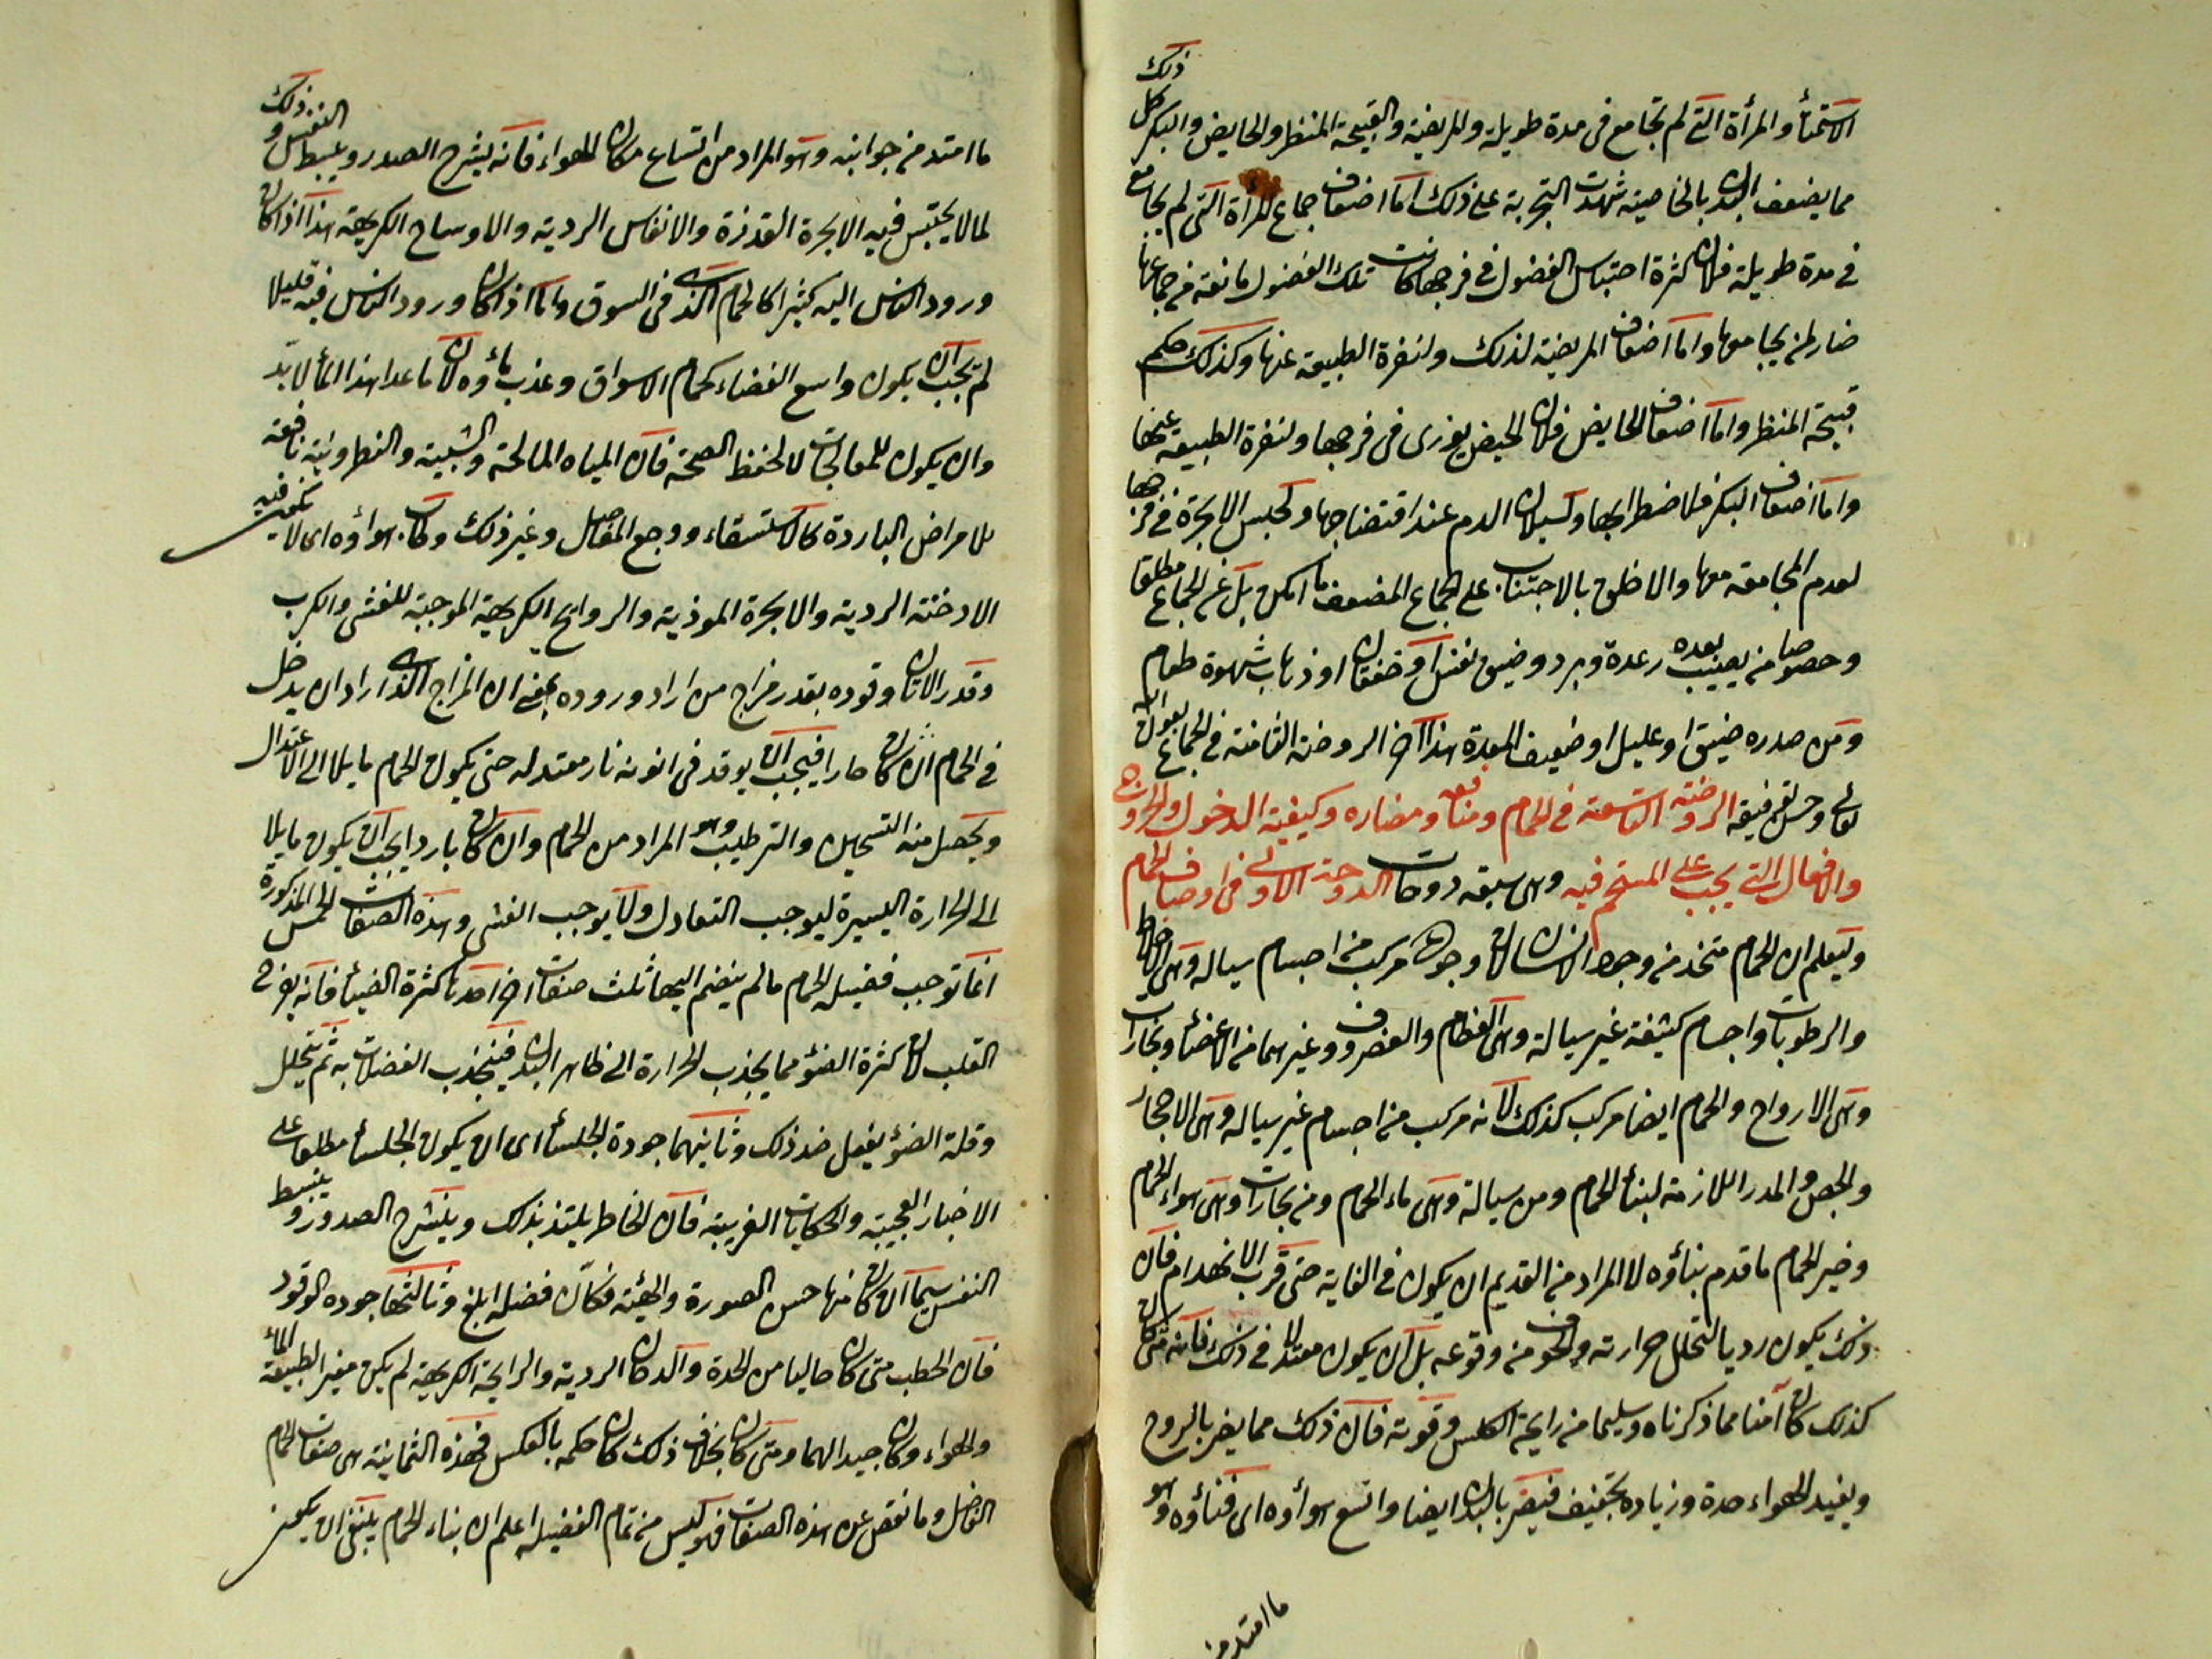 الاستمناء والمرأة التى لم تجامع فى مدة طويلة والمريضة والقبيحة المنظر والحايض والبكر كل ذلك
مما يضعف البدن بالخاصية شهدت التجربة على ذلك اما اضعاف جماع المرأة التى لم يجامع
فى مدة طويلة فلان كثرة احتباس الفضول فى فرجها كانت تلك الفضول مانعة من جماعها
ضار لمن يجامعها واما اضعاف المريضة لذلك ولنفرة الطبيعة عنها وكذلك حكم
قبيحة المنظر واما اضعاف الحايض فلان الحيض يوذى فى فرجها ولنفرة الطبيعة عنها
واما اضعاف البكر فلاضطرابها ولسيلان الدم عند اقتضاضها ولحبس الابخرة فى فرجها
لعدم المجامعة معها والاظهر بالاجتناب على الجماع المضعف ما امكن بل عن الجماع مطلقا
وخصوصا من يصيبه بعده رعدة وبرد وضيق نفس او خفقان او ذهاب شهوة طعام
ومن صدره ضيق او عليل او ضعيف المعدة هذا آخر الروضة الثامنة فى الجماع بعون الله
تعالى وحسن توفيقه الروضة التاسعة فى الحمام ومنافعه ومضاره وكيفية الدخول والخروج
والافعال التى يجب على المستحم فيه وهى سبعة دوحات الدوحة الاولى فى اوصاف الحمام
وليعلم ان الحمام متخذ من وجود الانسان لان وجوده مركب من اجسام سياله وهى الاخلاط
والرطوبات واجسام كثيفة غير سيالة وهى العظام والغضروف وغيرهما من الاعضاء وبخارات
وهى الارواح والحمام ايضا مركب كذلك لانه مركب من اجسام غير سياله وهى الاحجار
والجص والمدر اللازمة لبناء الحمام ومن سيالة وهى ماء الحمام ومن بخارات وهى هواء الحمام
وخير الحمام ما قدم بناؤه لا المراد من القديم ان يكون فى الغاية حتى قرب الانهدام فان
ذلك يكون رديا لتحلل حرارته ولخوف من وقوعه بل ان يكون معتدلا فى ذلك فانه متى كان
كذلك كان آمنا مما ذكرناه وسليما من رايحة الكلس وقوته فان ذلك مما يضر بالروح
ويفيد الهواء حدة وزيادة تجفيف فيضر بالبدن ايضا واتسع هوأوه اى فناؤه وهو
ما امتد من
ما امتد من جوانبه وهو المراد من اتساع مكان الهواء فانه يشرح الصدر ويبسط النفس وذلك
لما لا يحتبس فيه الابخرة القذرة والانفاس الردية والاوساخ الكريهة هذا اذا كان
ورود الناس اليه كثيرا كالحمام الذى فى السوق واما اذا كان ورود الناس فيه قليلا
لم يجب ان يكون واسع الفضاء كحمام الاسواق وعذب ماؤه لان ما عدا هذا الماء لا بد
وان يكون للمعالجات لا لحفظ الصحة فان المياه المالحة والشبية والنطرونية نافعة
للامراض الباردة كالاستسقاء ووجع المفاصل وغير ذلك وطاب هواؤه اى لا يكون فيه
الادخنة الردية والابخرة الموذية والروايح الكريهة الموجبة للغشى والكرب
وقدر الاتان وقوده بقدر مزاج من اراد وروده يعنى ان المزاج الذى اراد ان يدخل
فى الحمام ان كان حارا فيجب ان يوقد فى اتونه نار معتدله حتى يكون الحمام مايلا الى الاعتدال
ويحصل منه التسخين والترطيب وهو المراد من الحمام وان كان باردا يجب ان يكون مايلا
الى الحرارة اليسيرة ليوجب التعادل ولا يوجب الغشى وهذه الصفات الخمس المذكورة
انما توجب فضيلة الحمام مالم ينضم اليها ثلث صفات اخر احدها كثرة الضياء فانه يفرح
القلب لان كثرة الضوء مما يجذب الحرارة الى ظاهر البدن فينجذب الفضلات به ثم تتحلل
وقلة الضوء يفعل ضد ذلك وثانيهما جودة الجلساء اى ان يكون الجلساء مطلعا على
الاخبار العجيبة والحكايات الغريبة فان الخاطر يلتذ بذلك وينشرح الصدور وينبسط
النفس سيما ان كان منها حسن الصورة والهيئة فكان فضله ابلغ وثالثها جوده الوقود
فان الحطب متى كان خاليا من الحدة والدخان الردية والرايحة الكريهة لم يكن مغير الطبيعة الماء
والهواء وكان جيدا لهما ومتى كان بخلاف ذلك كان حكمه بالعكس فهذه الثمانية هى صفات الحمام
الفاضل وما نقص عن هذه الصفات فهو ليس من تمام الفضيلة اعلم ان بناء الحمام ينبغى ان يكون